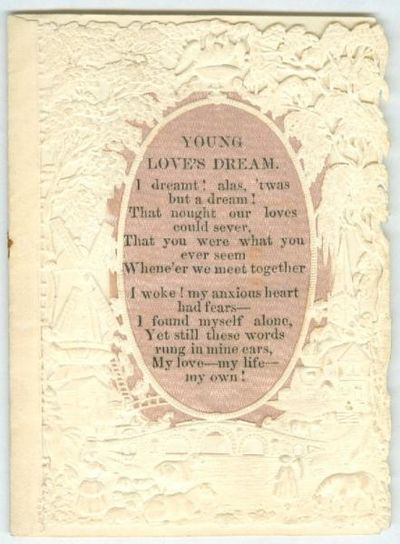 YOUNG
LOVE'S DREAM.
I dreamt! alas, 'twas
but a dream!
That nought our loves
could sever,
That you were what you
ever seem
Whene'er we meet together
I woke! my anxious heart
had fears—
I found myself alone,
Yet still these words
rung in mine ears,
My love—my life—
my own!